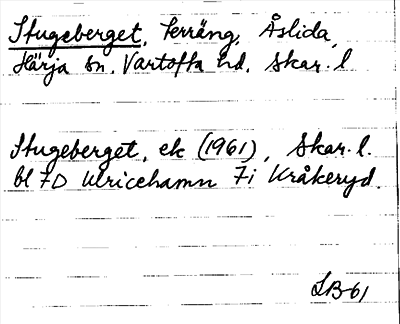 Stugeberget, terräng, Åslida,
Härja sn. Vartofta hd. Skar. l
Stugeberget, ek (1961), Skar. l.
bl 7D Ulricehamn 7i Kråkeryd.
LB-61